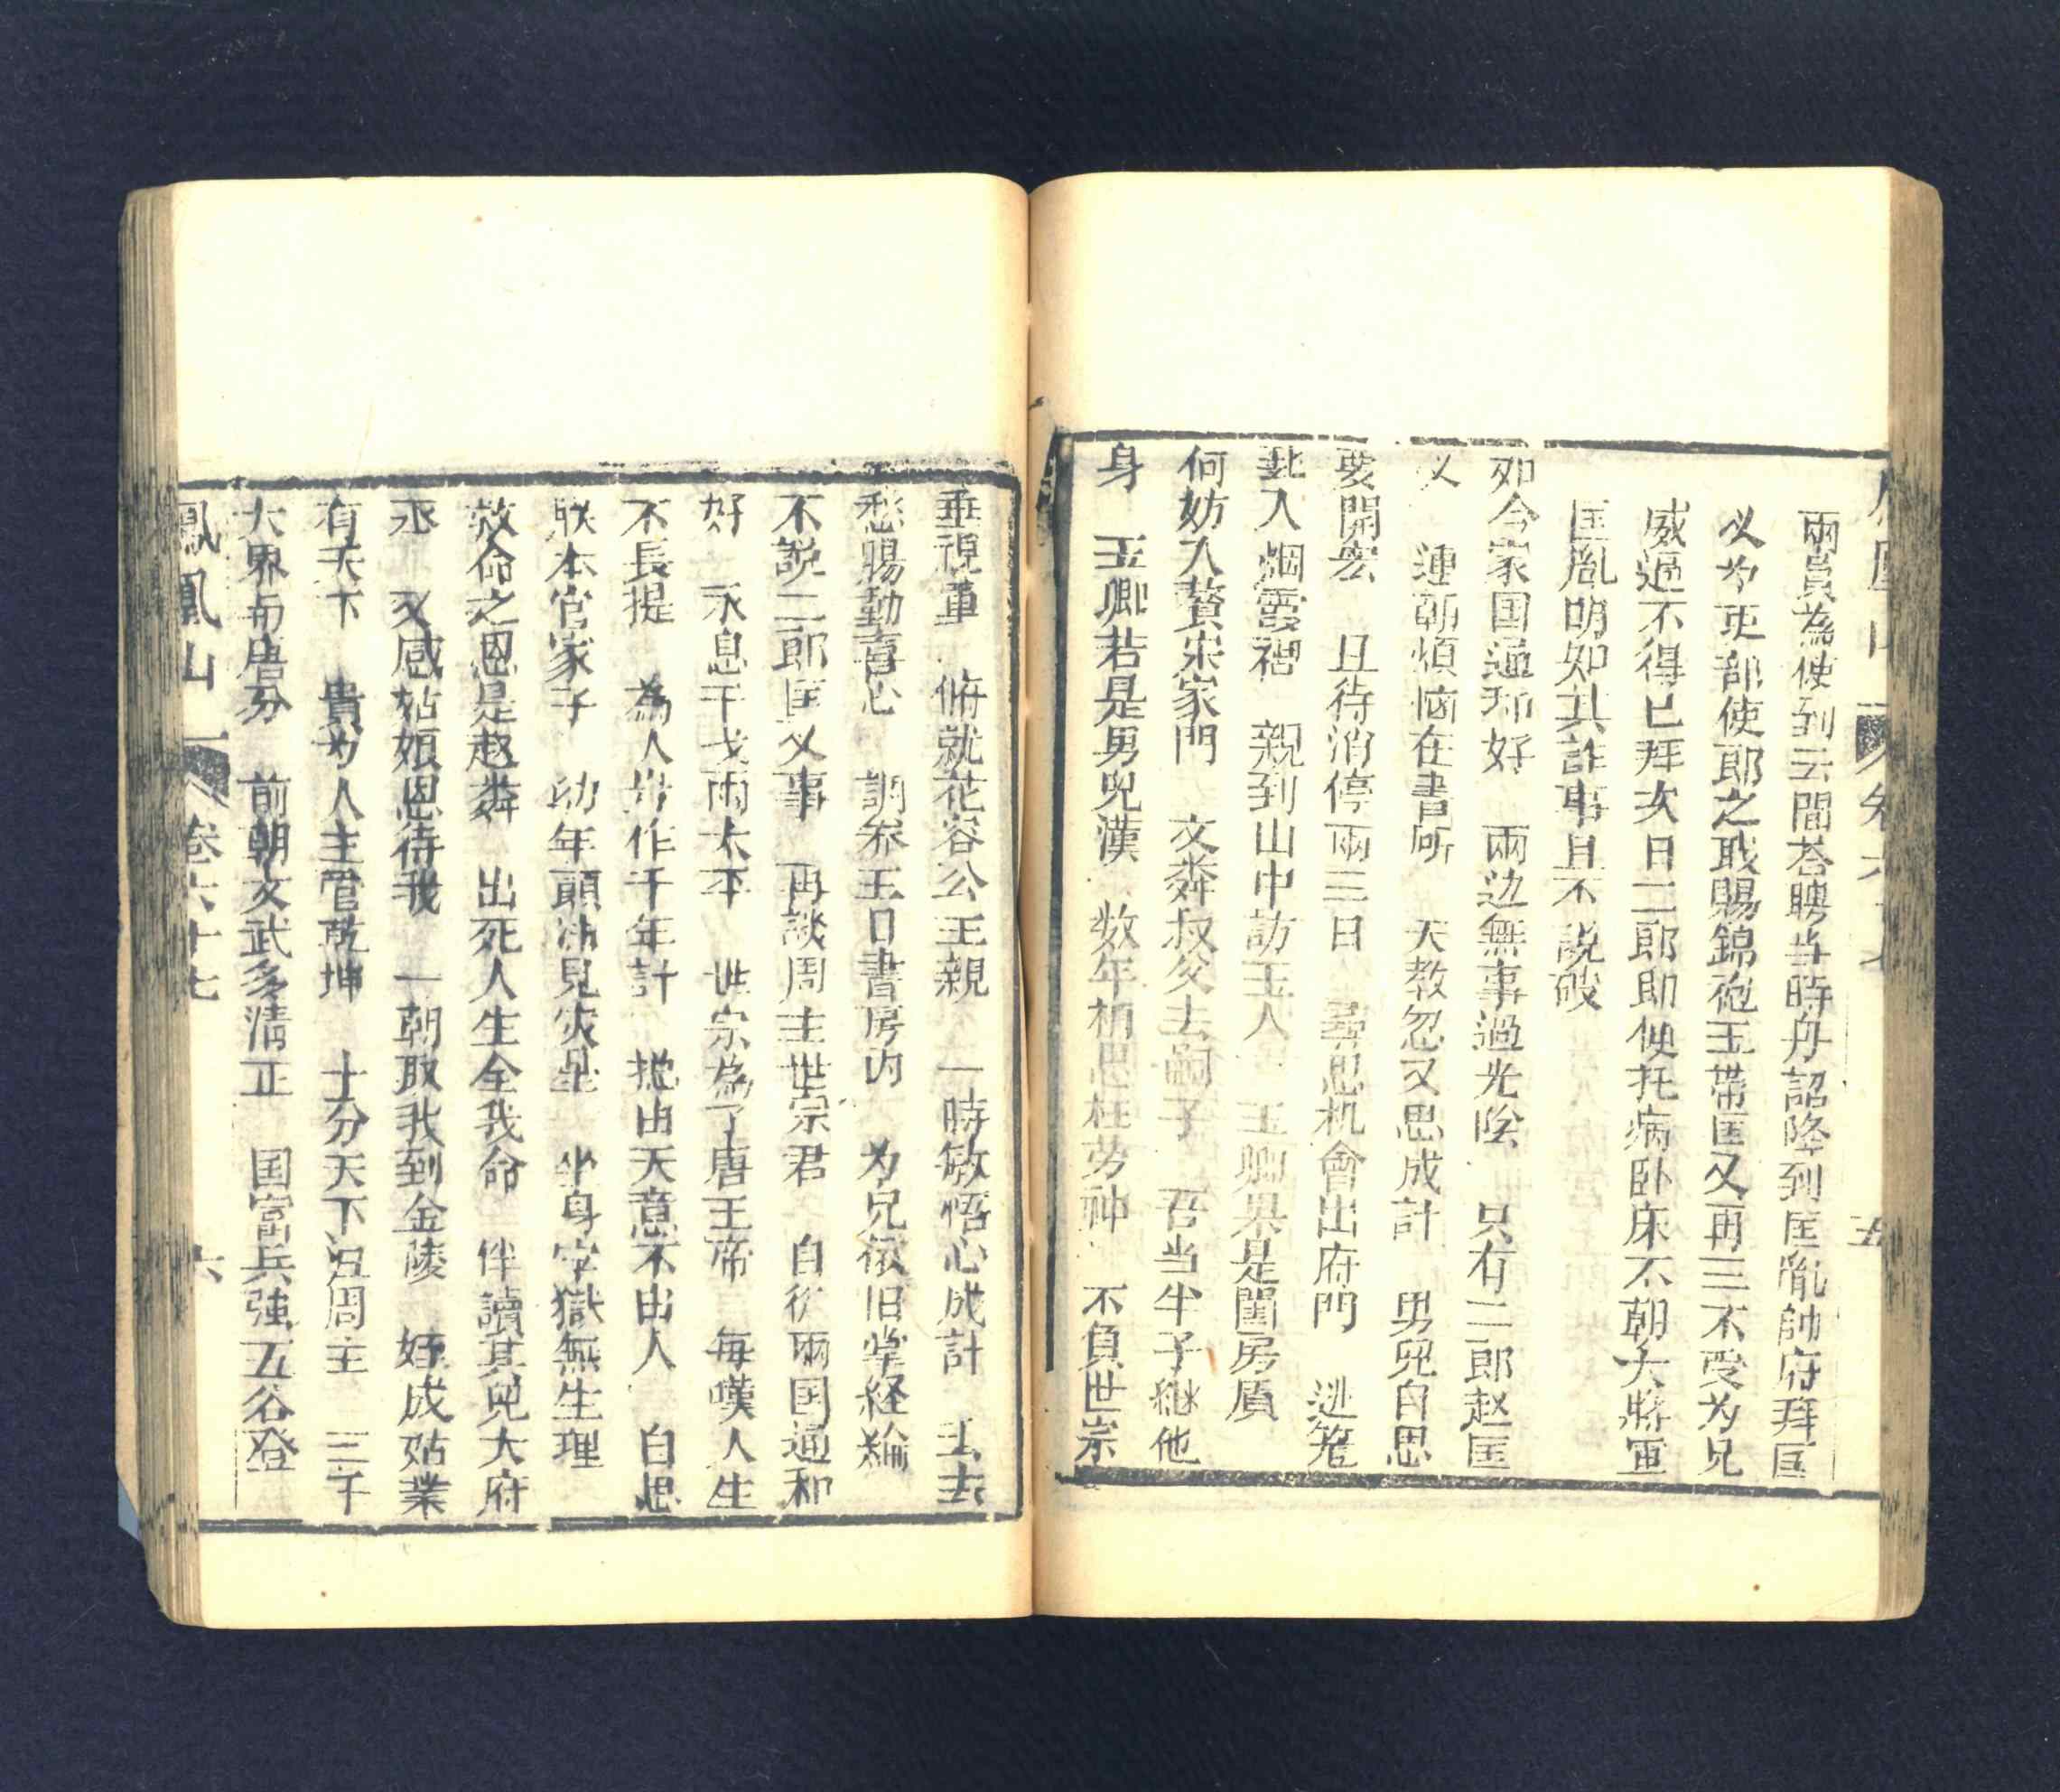 兩員為使到云間荅聘当時舟詔降到匡胤帥府拜匡
乂为吏部使郎之职賜錦砲玉带匡乂再三不受为兄
威逼不得已拜次日二郎即便托病卧床不朝大將軍
匡胤明知其詐事且不説破
如今家国通和好　兩边無事過光陰　只有二郎赵匡
乂　連朝煩悩在書所　天教忽又思成計　男兒自思
要開宏　且待消停兩三日　尋思机會出府門　逃
此入烟霞裡　親到山中訪玉人　玉卿果是閨房質
何妨入贅宋家門　文粦叔父去嗣子　吾当半子継他
身　玉卿若是男兒漢　数年相思枉劳神　不負世宗
垂視重　俯就花容公主親　一時敏悟心成計　去
愁腸動喜心　調养王日書房内　为兄依旧掌経綸
不説二郎匡乂事　再談周主世宗君　自從兩国通和
好　永息干戈雨太平　世宗為了唐王帝　每嘆人生
不長提　為人豈作千年計　揔由天意不由人　自思
朕本官家子　幼年顛沛見灾星　坐身牢獄無生理
效命之恩是赵粦　出死人生全我命　伴讀其兒大府
丞　又感姑娘恩待我　一朝取我到金陵　姪成姑業
有天下　貴为人主管乾坤　十分天下沮周主　三千
大界南唐分　前朝文武多清正　国富兵強五谷登
鳳凰山　卷六十七　六